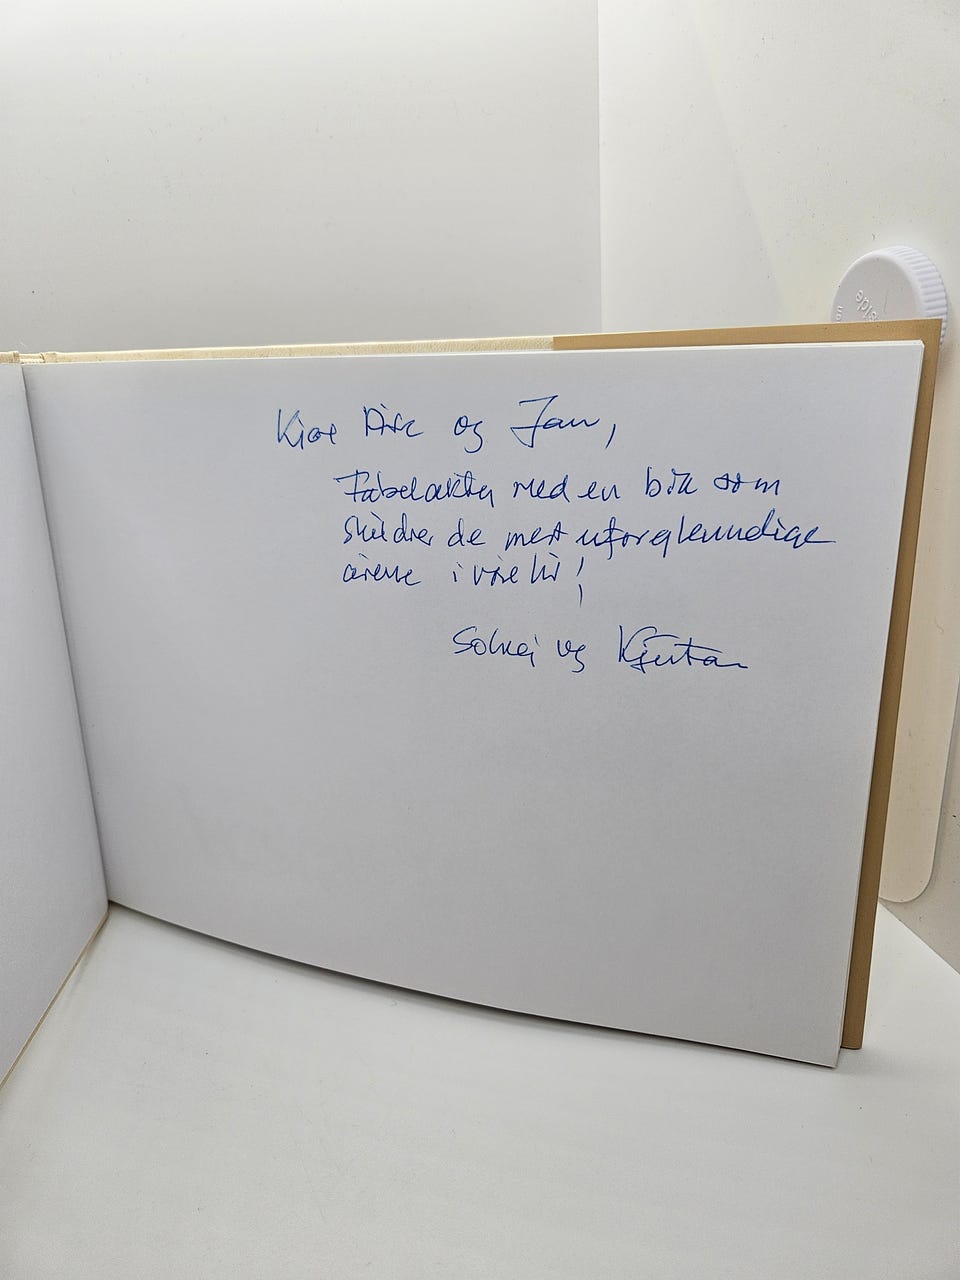 Kjære og Jan,
Fabelaktig med en bok som
skildrer de mest uforglemmelige
årene i våre liv!
Solvei og Kjartan